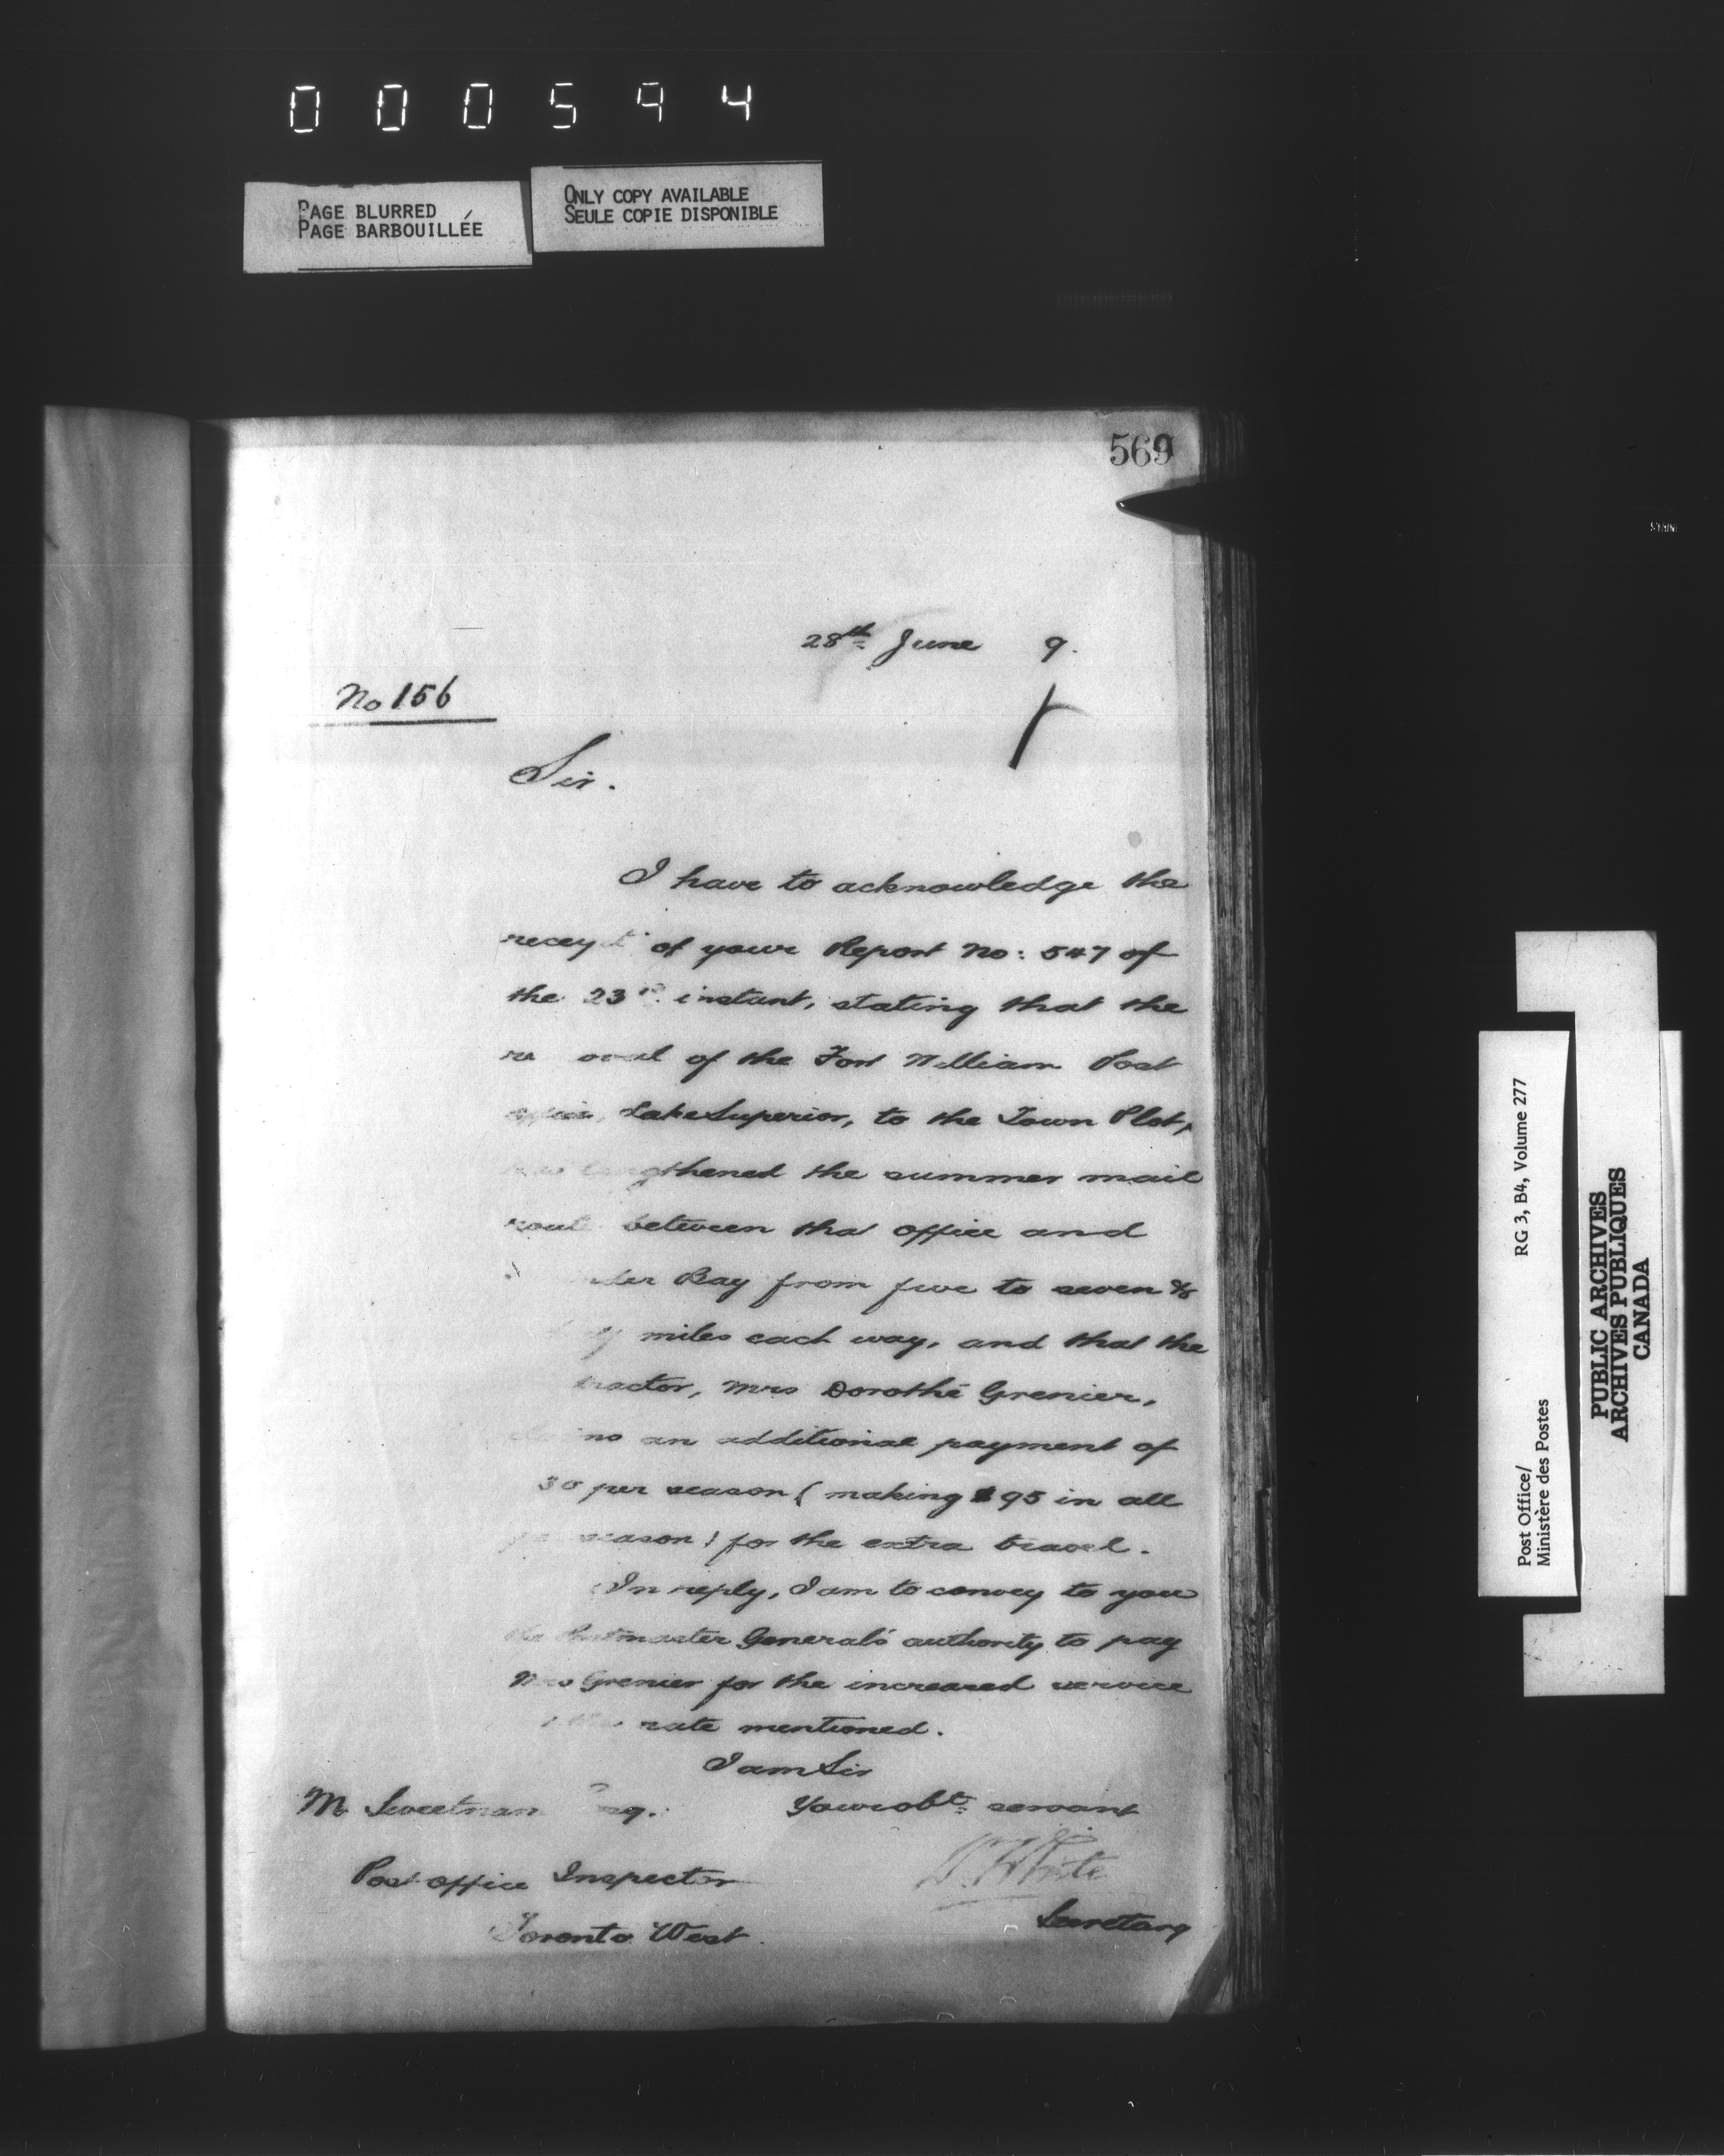 000594
PAGE BLURRED
PAGE BARBOUILLÉE
ONLY COPY AVAILABLE
SEULE COPIE DISPONIBLE
569
28th June 9.
No 156
Sir.
I have to acknowledge the
of your Report No: 547 of
the 23rd instant, stating that the
of the Fort William Post
Lake Superior, to the Town Plot,
the summer mail
between that office and
Bay from five to seven &
miles each way, and that the
Mrs Dorothé Grenier,
an additional payment of
30 per season (making $95 in all
season) for the extra travel.
In reply, I am to convey to you
the Postmaster General's authority to pay
Mrs Grenier for the increased service
rate mentioned.
I am Sir
Your obt. servant
M Sweetnam Esq.
W White
Post office Inspector
Secretary
Toronto West.
Post Office/
Ministère des Postes
RG 3, B4, Volume 277
PUBLIC ARCHIVES
ARCHIVES PUBLIQUES
CANADA